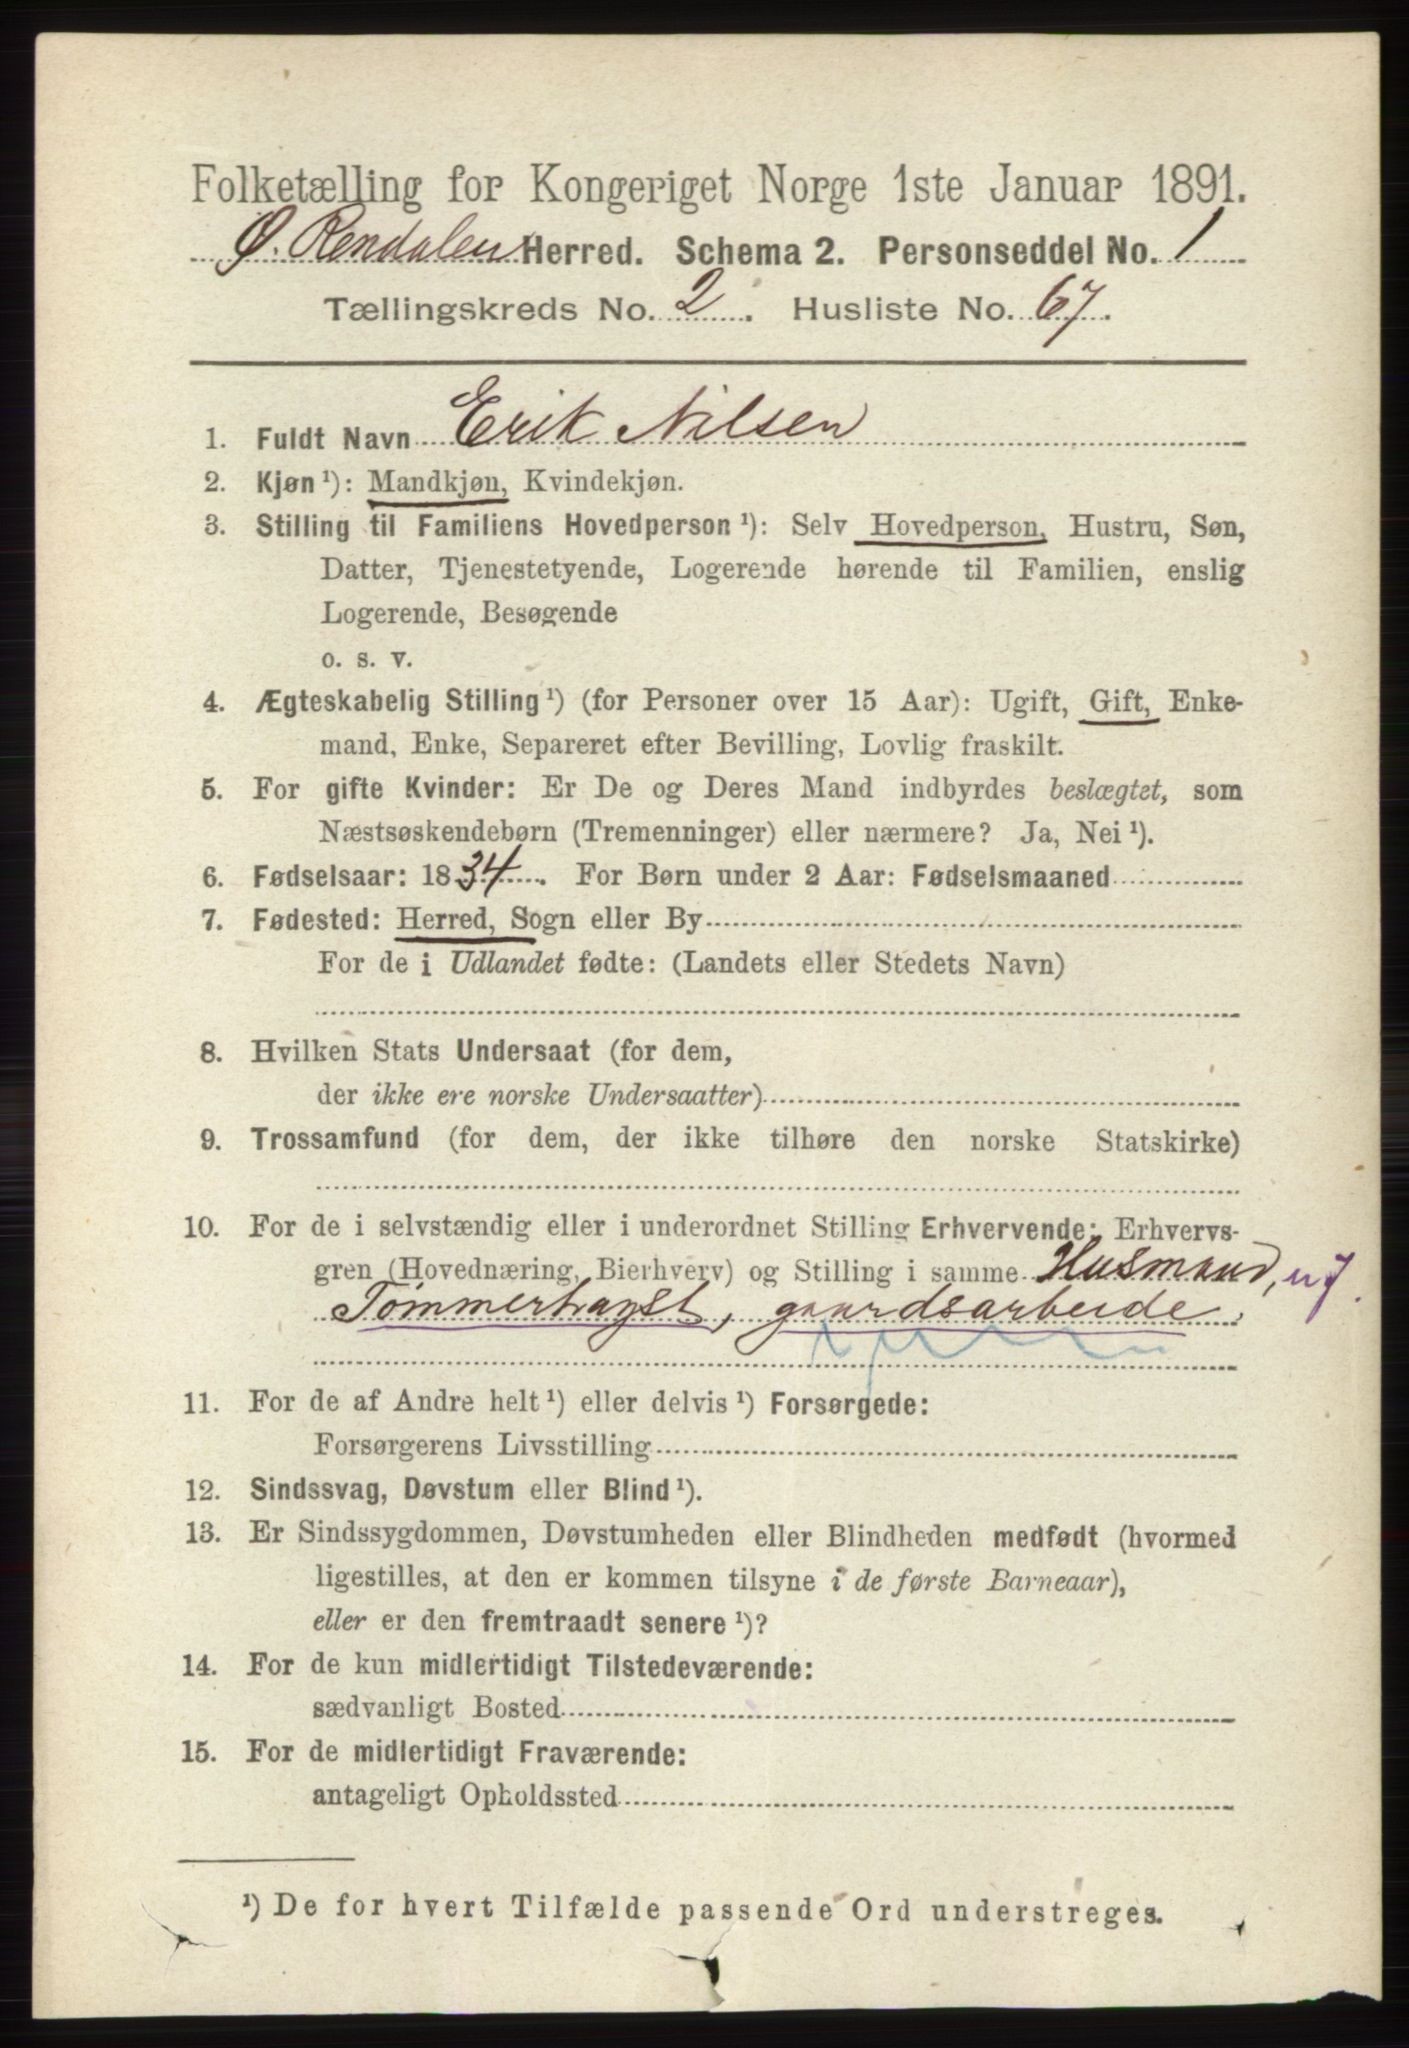 Folketælling for Kongeriget Norge 1ste Januar 1891.
Ø. Rendalen Herred. Schema 2. Personseddel No. 1
Tællingskreds No. 2. Husliste No. 67.
1. Fuldt Navn Erik Nilsen
2. Kjøn ¹): Mandkjøn, Kvindekjøn.
3. Stilling til Familiens Hovedperson ¹): Selv Hovedperson, Hustru, Søn,
Datter, Tjenestetyende, Logerende hørende til Familien, enslig
Logerende, Besøgende
o. s. v.
4. Ægteskabelig Stilling ¹) (for Personer over 15 Aar): Ugift, Gift, Enke-
mand, Enke, Separeret efter Bevilling, Lovlig fraskilt.
5. For gifte Kvinder: Er De og Deres Mand indbyrdes beslægtet, som
Næstsøskendebørn (Tremenninger) eller nærmere? Ja, Nei ¹).
6. Fødselsaar: 1834. For Børn under 2 Aar: Fødselsmaaned
7. Fødested: Herred, Sogn eller By
For de i Udlandet fødte: (Landets eller Stedets Navn)
8. Hvilken Stats Undersaat (for dem,
der ikke ere norske Undersaatter)
9. Trossamfund (for dem, der ikke tilhøre den norske Statskirke)
10. For de i selvstændig eller i underordnet Stilling Erhvervende: Erhvervs-
gren (Hovednæring, Bierhverv) og Stilling i samme Husmand,
Tømmerhugst, gaardsarbeide.
11. For de af Andre helt ¹) eller delvis ¹) Forsørgede:
Forsørgerens Livsstilling
12. Sindssvag, Døvstum eller Blind ¹).
13. Er Sindssygdommen, Døvstumheden eller Blindheden medfødt (hvormed
ligestilles, at den er kommen tilsyne i de første Barneaar),
eller er den fremtraadt senere ¹)?
14. For de kun midlertidigt Tilstedeværende:
sædvanligt Bosted
15. For de midlertidigt Fraværende:
antageligt Opholdssted
¹) De for hvert Tilfælde passende Ord understreges.